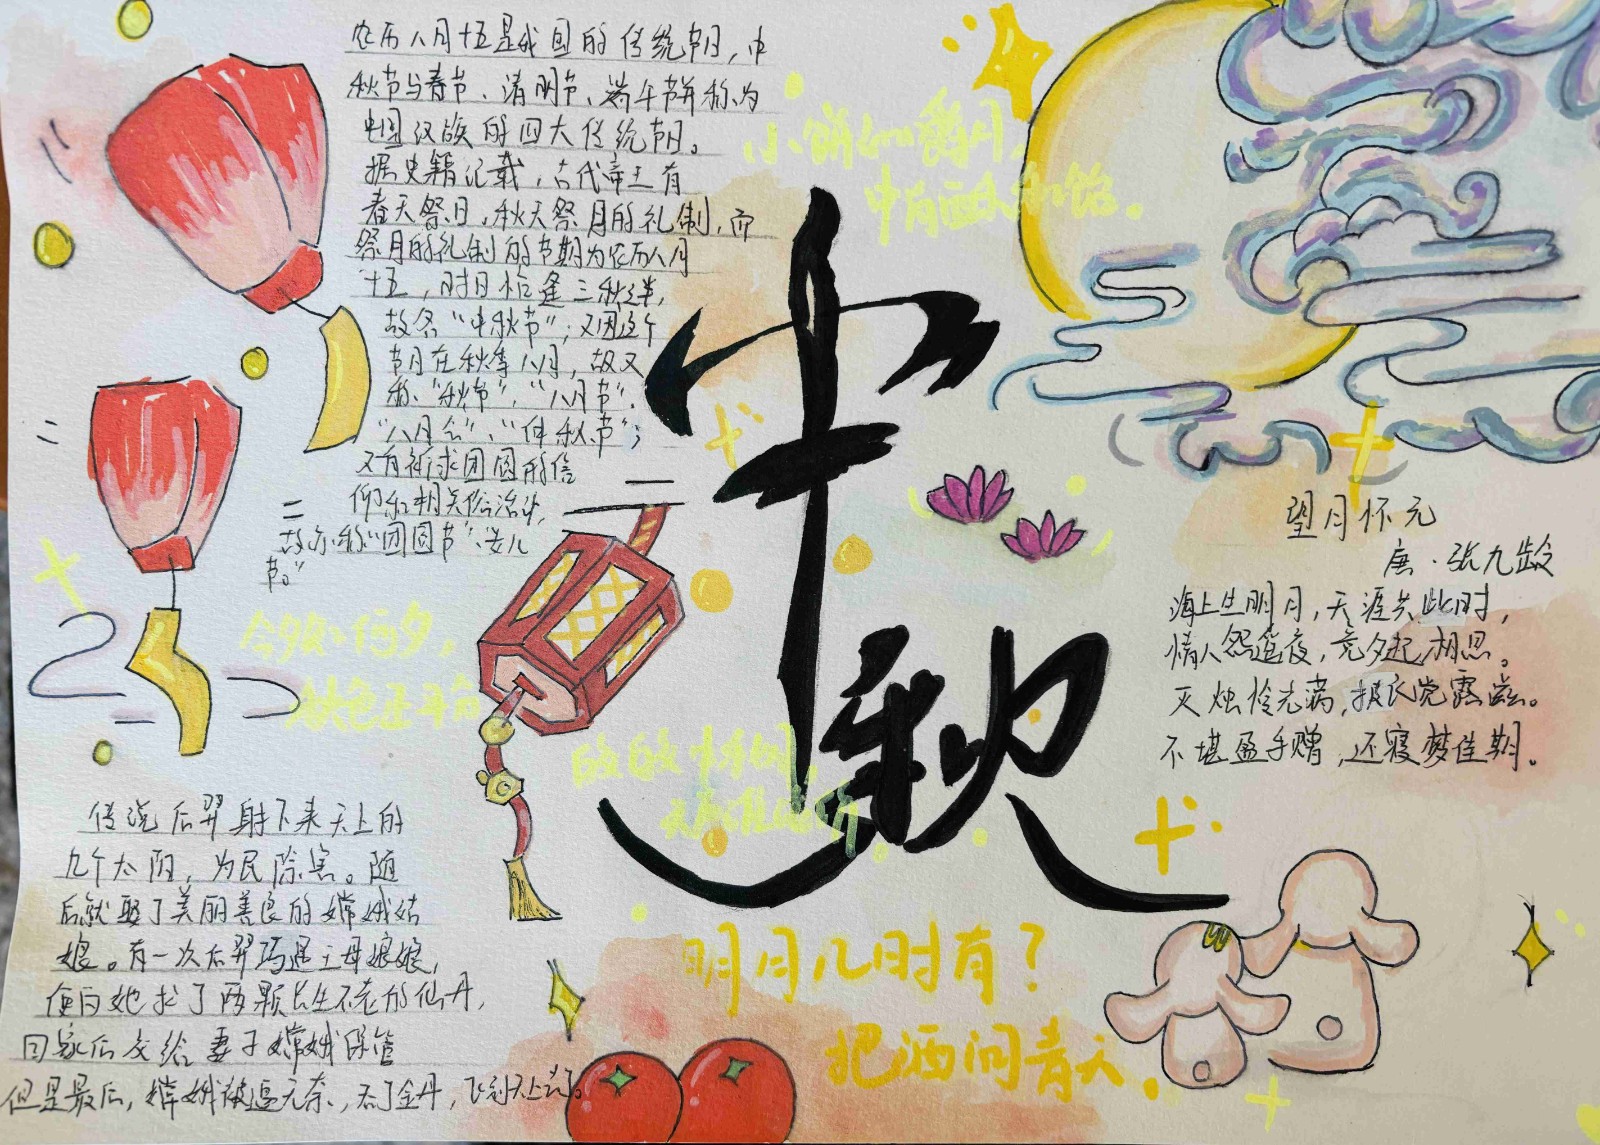 农历八月十五是我国的传统节日，中
秋节与春节、清明节、端午节并称为
中国汉族的四大传统节日。
据史籍记载，古代帝王有
春天祭日，秋天祭月的礼制，而
祭月的礼制的节期为农历八月
十五，时日恰逢三秋之半，
故名“中秋节”；又因这个
节日在秋季八月，故又
称“秋节”、“八月节”、
“八月会”、“仲秋节”；
又有祈求团圆的信
仰和相关俗活动，
故亦称“团圆节”、“女儿
节。”
小饼如嚼月，
中有酥和饴。
中秋
望月怀元
唐·张九龄
海上生明月，天涯共此时，
情人怨遥夜，竟夕起相思。
灭烛怜光满，披衣觉露滋。
不堪盈手赠，还寝梦佳期。
今夕何夕，
秋色正平分
皎皎
传说后羿射下来天上的
九个太阳，为民除害。随
后就娶了美丽善良的嫦娥姑
娘。有一次后羿巧遇王母娘娘，
便向她求了两颗长生不老的仙丹，
回家后交给妻子嫦娥保管
但是最后，嫦娥被逼无奈，吞了金丹，飞到天上去了。
明月几时有？
把酒问青天.